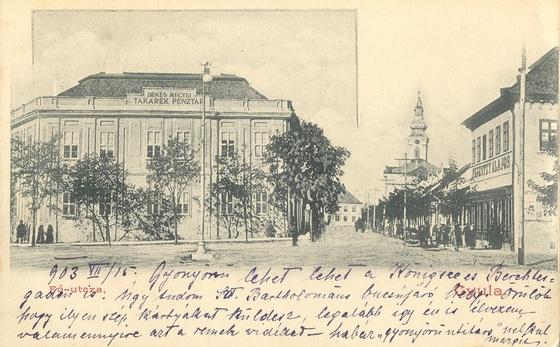 BÉKÉS MEGYEI
TAKARÉK PÉNZTÁR
Fő-utcza.
Gyula.
903 VII/15. Gyönyörű lehet lehet a Königsee és Berchtes-
gaden is. Úgy tudom St. Bartholomäus búcsújáró hely. Örülök
hogy ilyen szép kártyákat küldesz, legalább így én is élvezem
valamennyire azt a remek vidéket – habár „gyönyörű útitárs” nélkül
Margit.